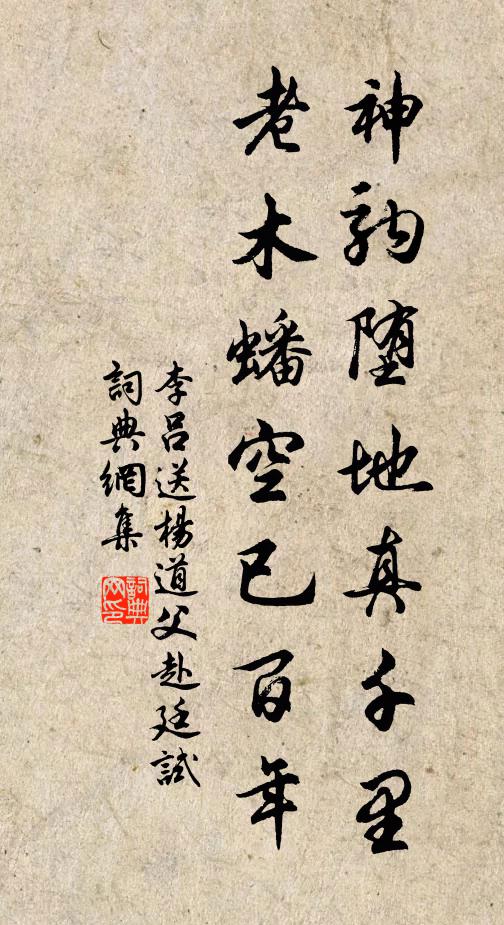 神駒堕地真千里
老木蟠空已百年
李呂送楊道父赴廷試
詞典網集
詞典网印